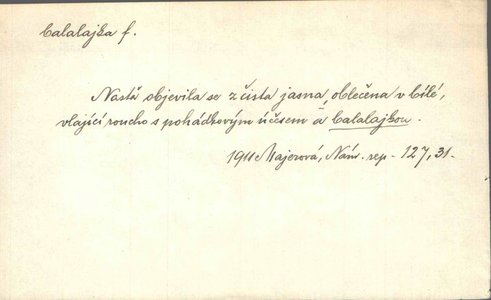 balalajka f.
Nasťa objevila se z čista jasna, oblečena v bílé,
vlající roucho s pohádkovým účesem a balalajkou.
1911 Majerová, Nám. rep. 127, 31.